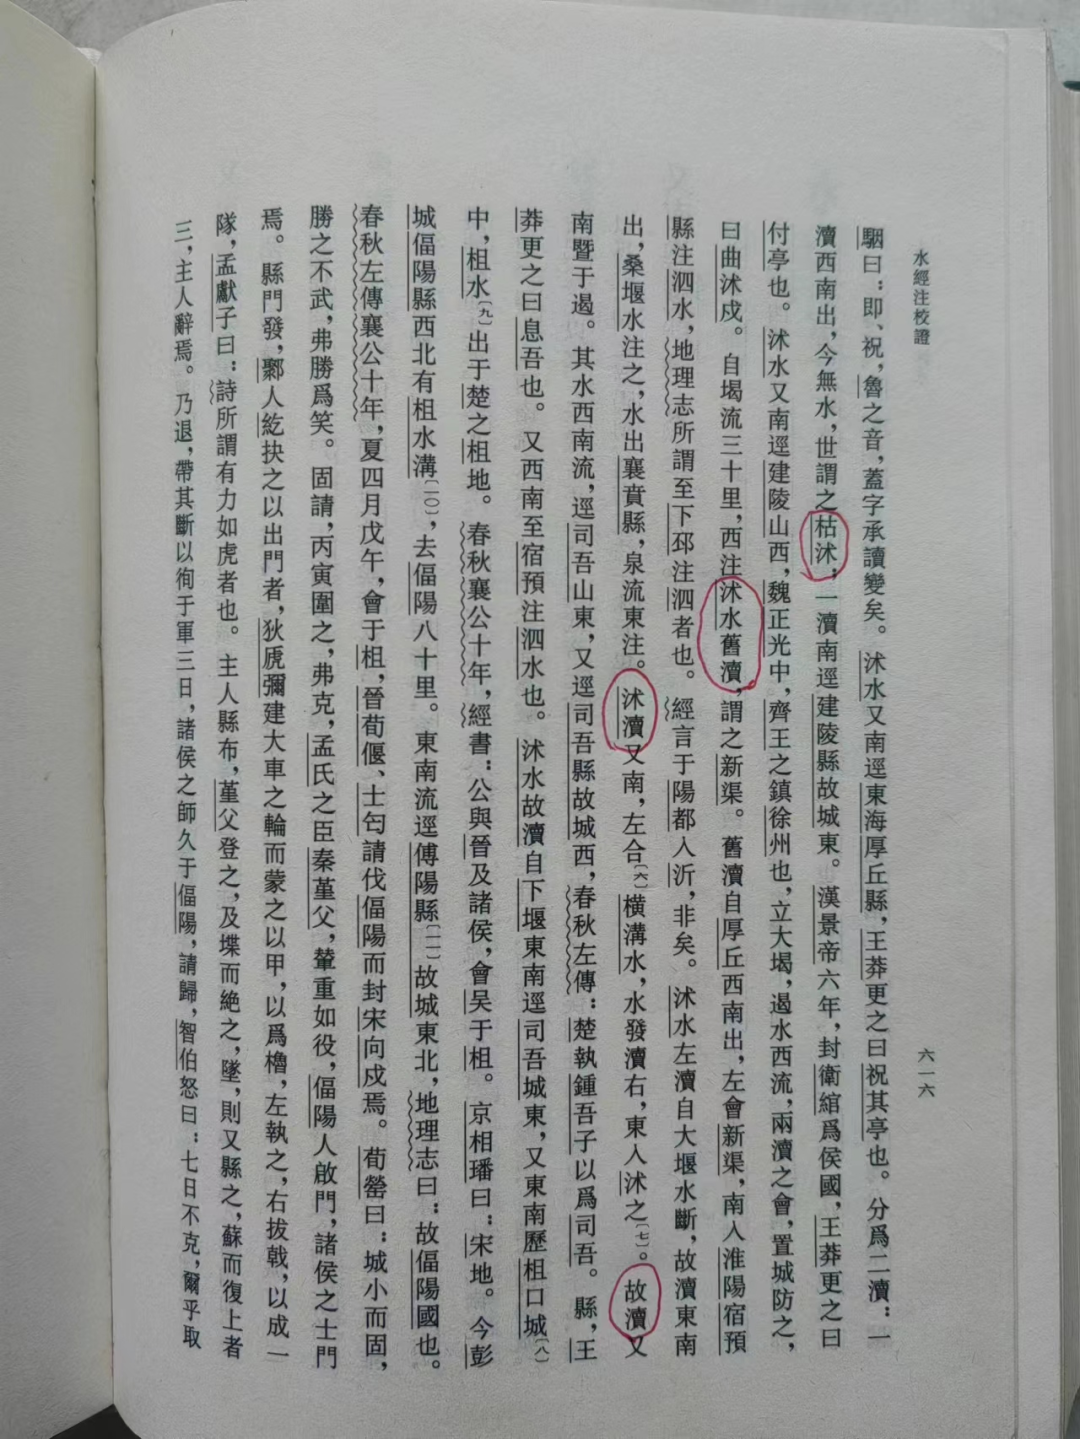 水經注校證
六一六
駰曰：即、祝，魯之音，蓋字承讀變矣。沭水又南逕東海厚丘縣，王莽更之曰祝其亭也。分爲二瀆：一
瀆西南出，今無水，世謂之枯沭；一瀆南逕建陵縣故城東。漢景帝六年，封衛綰爲侯國，王莽更之曰
付亭也。沭水又南逕建陵山西，魏正光中，齊王之鎮徐州也，立大堨，遏水西流，兩瀆之會，置城防之，
曰曲沭戍。自堨流三十里，西注沭水舊瀆，謂之新渠。舊瀆自厚丘西南出，左會新渠，南入淮陽宿預
縣注泗水，地理志所謂至下邳注泗者也。經言于陽都入沂，非矣。沭水左瀆自大堰水斷，故瀆東南
出，桑堰水注之，水出襄賁縣，泉流東注。沭瀆又南，左合〔六〕橫溝水，水發瀆右，東入沭之〔七〕。故瀆又
南暨于遏。其水西南流，逕司吾山東，又逕司吾縣故城西，春秋左傳：楚執鍾吾子以爲司吾。縣，王
莽更之曰息吾也。又西南至宿預注泗水也。沭水故瀆自下堰東南逕司吾城東，又東南歷柤口城〔八〕
中，柤水〔九〕出于楚之柤地。春秋襄公十年，經書：公與晉及諸侯，會吳于柤。京相璠曰：宋地。今彭
城偪陽縣西北有柤水溝〔一〇〕，去偪陽八十里。東南流逕傅陽縣〔一一〕故城東北，地理志曰：故偪陽國也。
春秋左傳襄公十年，夏四月戊午，會于柤，晉荀偃、士匄請伐偪陽而封宋向戍焉。荀罃曰：城小而固，
勝之不武，弗勝爲笑。固請，丙寅圍之，弗克，孟氏之臣秦堇父，輦重如役，偪陽人啟門，諸侯之士門
焉。縣門發，鄹人紇抉之以出門者，狄虒彌建大車之輪而蒙之以甲，以爲櫓，左執之，右拔戟，以成一
隊，孟獻子曰：詩所謂有力如虎者也。主人縣布，堇父登之，及堞而絶之，墜，則又縣之，蘇而復上者
三，主人辭焉。乃退，帶其斷以徇于軍三日，諸侯之師久于偪陽，請歸，智伯怒曰：七日不克，爾乎取